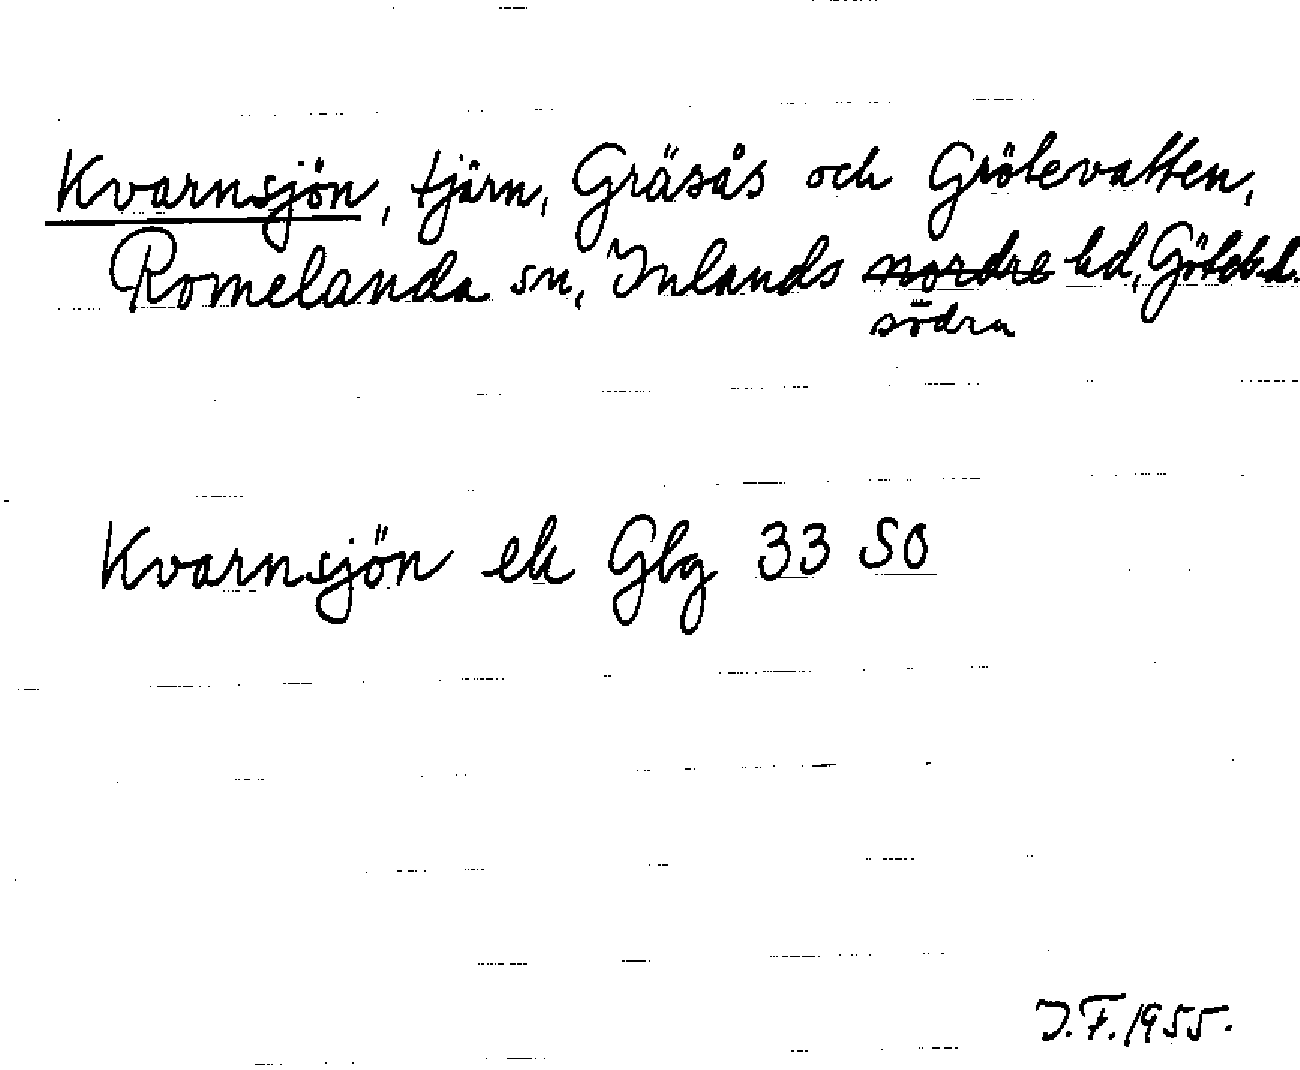 Kvarnsjön, tjärn, Gräsås och Grötevatten,
Romelanda sn, Inlands nordre hd, Götebd.
södra
Kvarnsjön ek Gbg 33 SO
J.F. 1955.